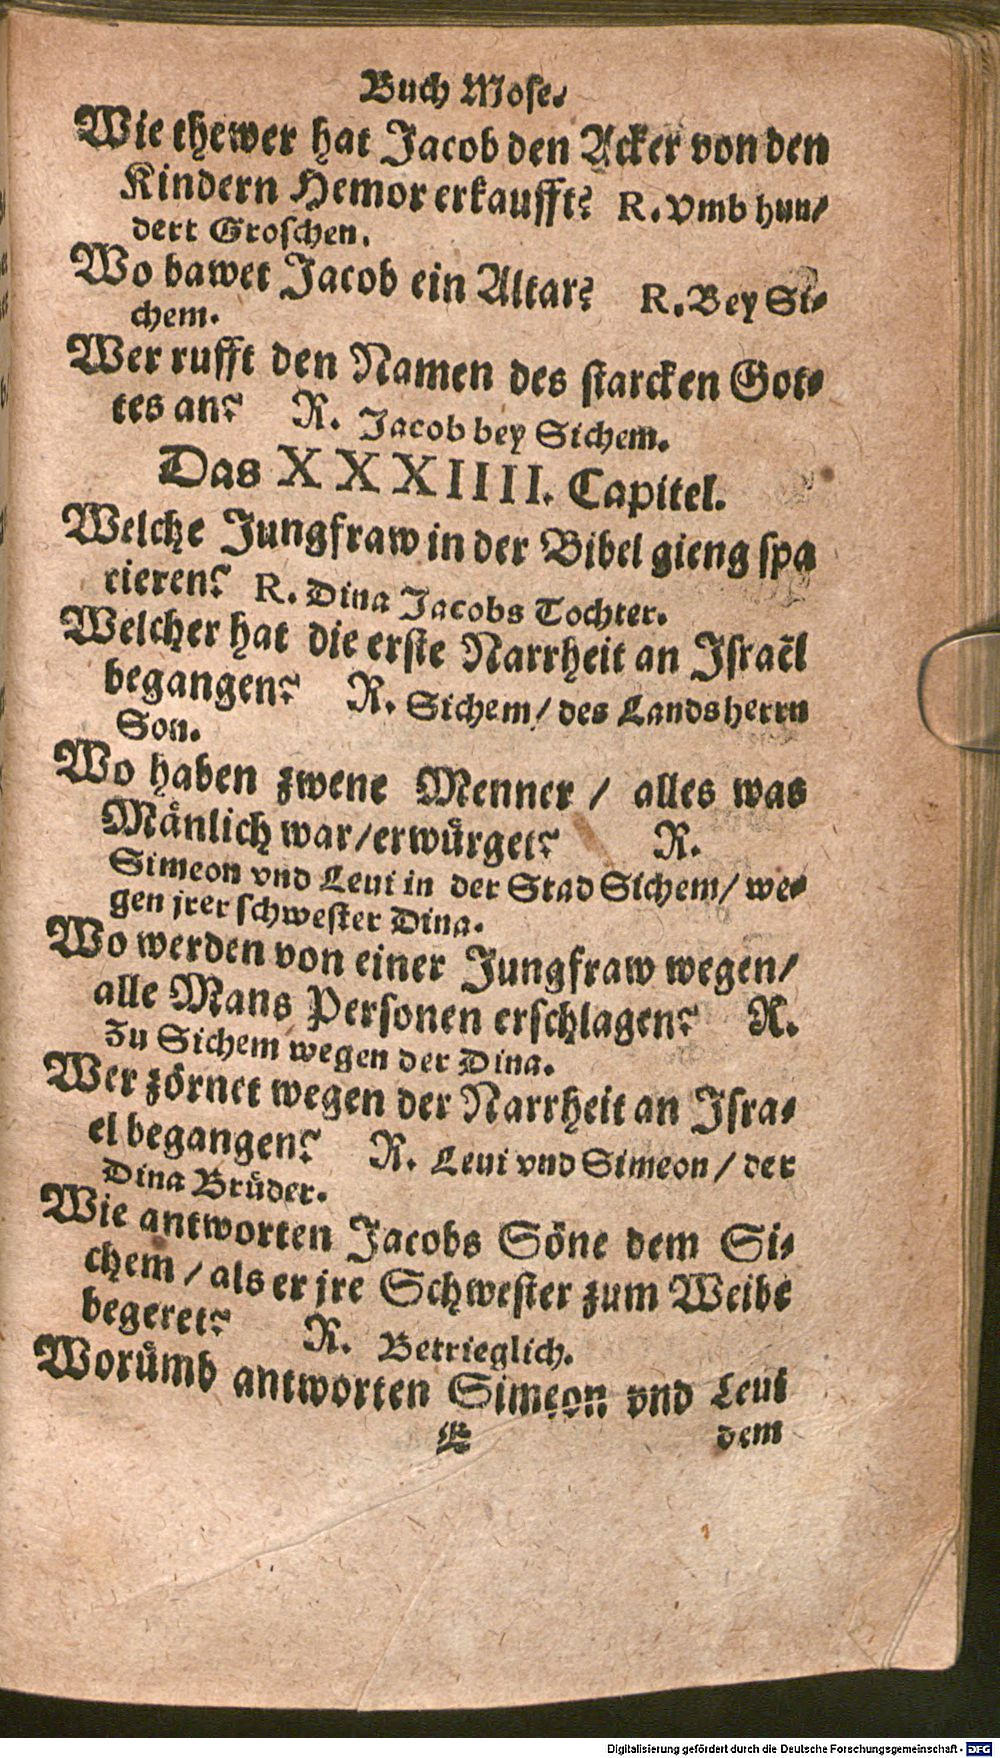 Buch Mose.
Wie thewer hat Jacob den Acker von den
Kindern Hemor erkaufft? R. Vmb hun-
dert Groschen.
Wo bawet Jacob ein Altar? R. Bey Si-
chem.
Wer rufft den Namen des starcken Got-
tes an? R. Jacob bey Sichem.
Das XXXIIII. Capitel.
Welche Jungfraw in der Bibel gieng spa
cieren? R. Dina Jacobs Tochter.
Welcher hat die erste Narrheit an Israel
begangen? R. Sichem / des Landsherrn
Son.
Wo haben zwene Menner / alles was
Mänlich war / erwürget? R.
Simeon vnd Leui in der Stad Sichem / we-
gen jrer schwester Dina.
Wo werden von einer Jungfraw wegen /
alle Mans Personen erschlagen? R.
Zu Sichem wegen der Dina.
Wer zörnet wegen der Narrheit an Isra-
el begangen? R. Leui vnd Simeon / der
Dina Brüder.
Wie antworten Jacobs Söne dem Si-
chem / als er jre Schwester zum Weibe
begeret? R. Betrieglich.
Worümb antworten Simeon vnd Leui
dem
Digitalisierung gefördert durch die Deutsche Forschungsgemeinschaft - DFG